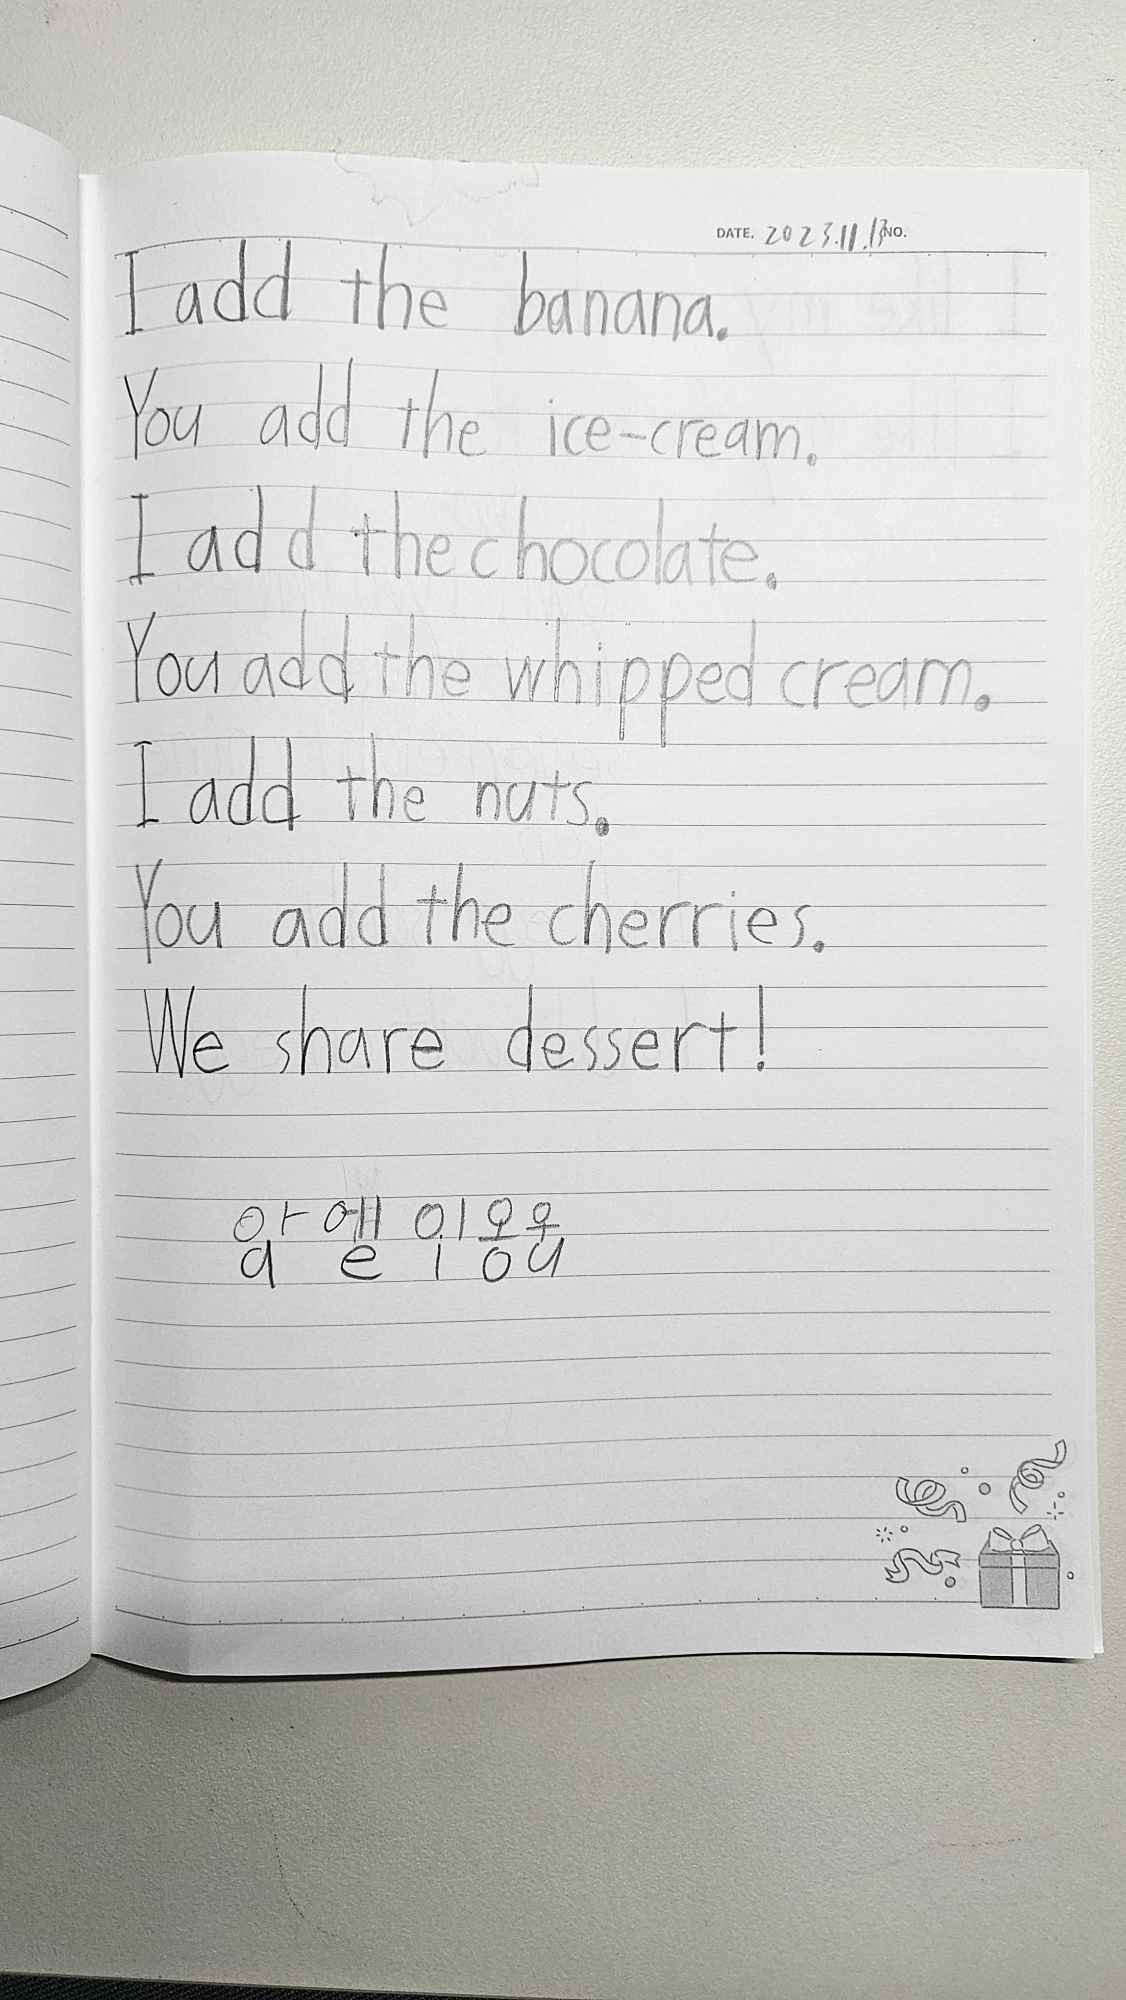 DATE. 2023.11.13 NO.
I add the banana.
You add the ice-cream.
I add the chocolate.
You add the whipped cream.
I add the nuts.
You add the cherries.
We share dessert!
아 에 이 오 우
a e i o u